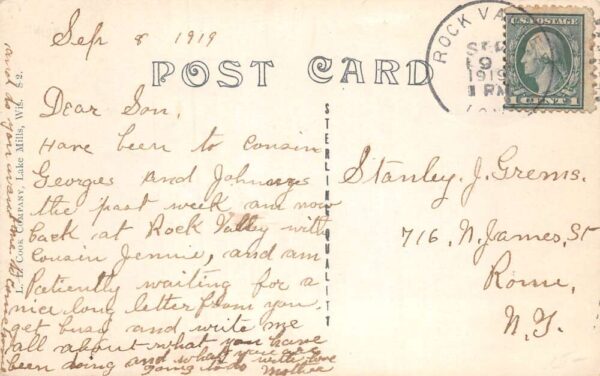 Sep 8 1919
POST CARD
ROCK VA
SEP
9
1919
1 PM
U.S. POSTAGE
1 CENT 1
Dear Son,
Have been to cousin
Georges and Johnnys
the past week am now
back at Rock Valley with
Cousin Jennie, and am
Patiently waiting for a
nice long letter from you.
get busy and write me
all about what you have
been doing and what you are
going to do with love
Mother
and do you want me to come
L. L. COOK COMPANY, LAKE MILLS, WIS.
STERLING QUALITY
Stanley. J. Grems.
716, N. James, St
Rome,
N.Y.
15-